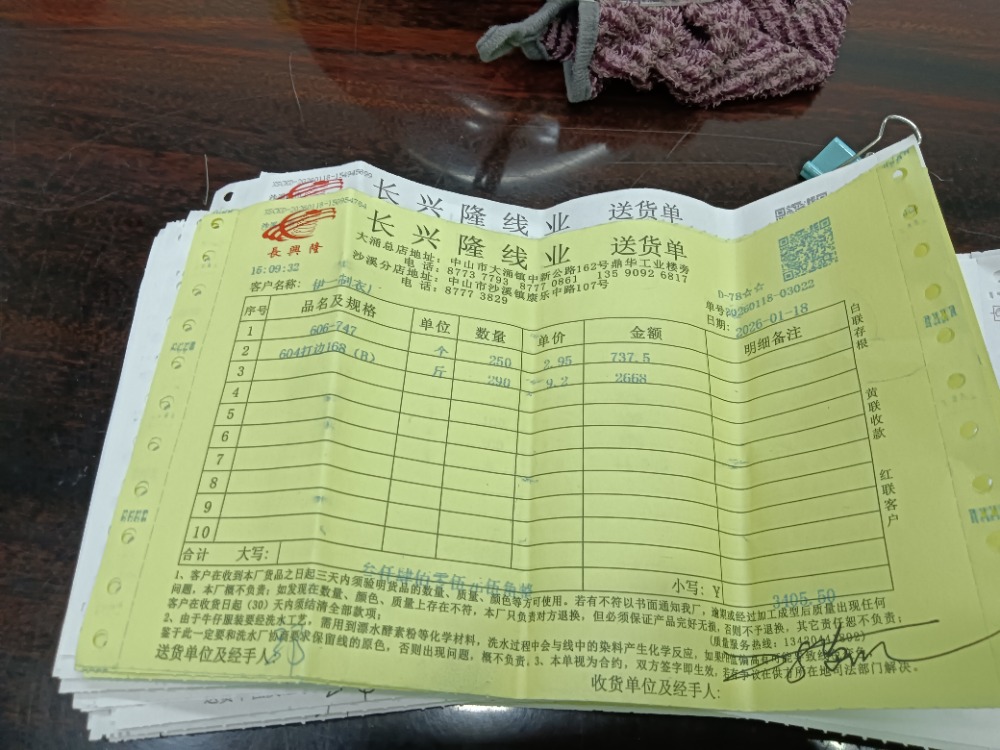 长兴隆线业 送货单
长兴隆线业 送货单
長興隆
大涌总店地址：中山市大涌镇中新公路162号鼎华工业楼旁
电话：8773 7793 8777 0861 135 9092 6817
沙溪分店地址：中山市沙溪镇康乐中路107号
电话：8777 3829
15:09:32
D-78☆☆
客户名称：伊一制衣厂
单号：20260118-03022
日期：2026-01-18
序号 品名及规格 单位 数量 单价 金额 明细备注
1 606-747 个 250 2.95 737.5
2 604打边168（B） 斤 290 9.2 2668
3
4
5
6
7
8
9
10
白联存根
黄联收款
红联客户
合计 大写：叁仟肆佰零伍元伍角整 小写：¥ 3405.50
1、客户在收到本厂货品之日起三天内须验明货品的数量、质量、颜色等方可使用，若有不符以书面通知我厂，
问题，本厂概不负责；如发现在数量、颜色、质量上存在不符，本厂只负责对方退换，但必须保证产品完好无损，否则不予退换，其它责任恕不负责；
客户在收货日起（30）天内须结清全部款项；
2、由于牛仔服装要经洗水工艺，需用到漂水酵素粉等化学材料，洗水过程中会与线中的染料产生化学反应，
鉴于此一定要和洗水厂协商要求保留线的原色，否则出现问题，概不负责。3、本单视为合约，双方签字即生效，
送货单位及经手人：
收货单位及经手人：